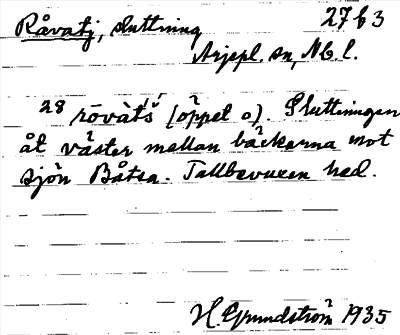 Råvatj, sluttning 27 b 3
Arjepl. sn, Nb l.
28 rōvàt́š́ (öppet o). Sluttningen
åt väster mellan bäckarna mot
sjön Båtsa. Tallbevuxen hed.
H. Grundström 1935